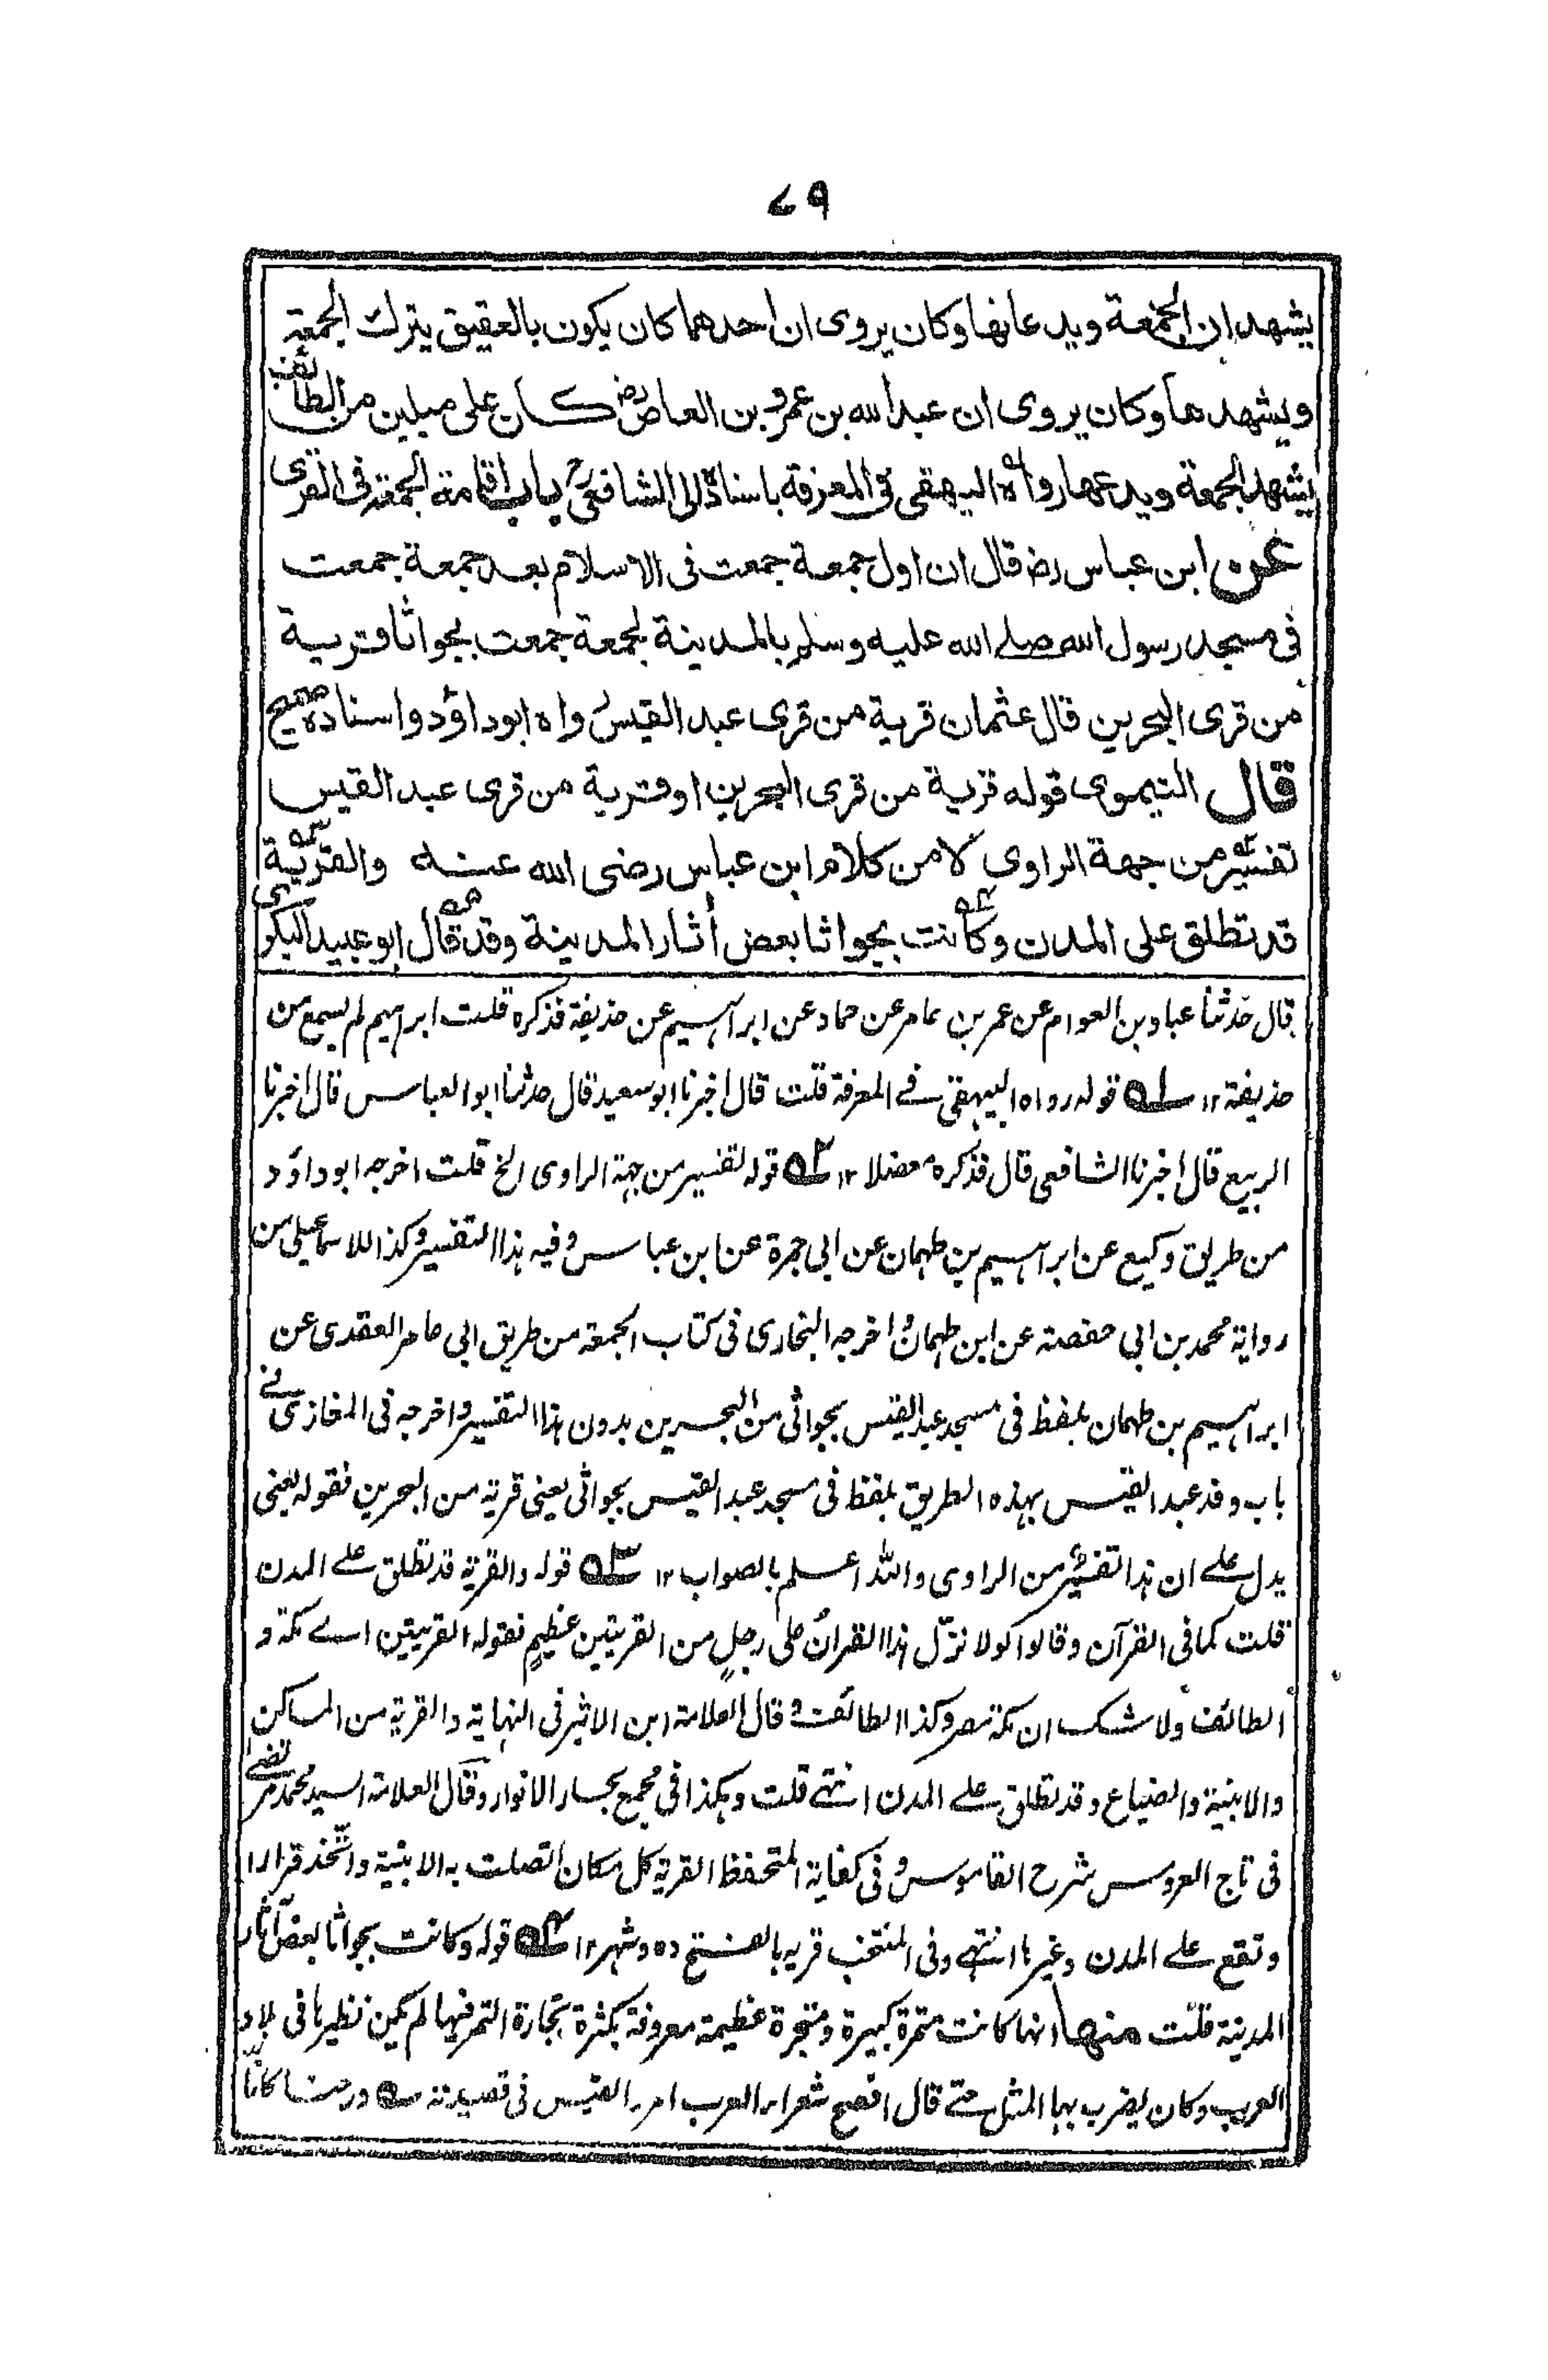 ٧٩
يشهدان الجمعة ويدعانها وكان يروى ان احدهما كان يكون بالعقيق يترك الجمعة
ويشهدها وكان يروى ان عبد الله بن عمرو بن العاص رض كان على ميلين من الطائف
يشهد الجمعة ويدعها رواه البيهقى فى المعرفة باسناده الى الشافعى باب اقامة الجمعة فى القرى
عن ابن عباس رض قال ان اول جمعة جمعت فى الاسلام بعد جمعة جمعت
فى مسجد رسول الله صلى الله عليه وسلم بالمدينة لجمعة جمعت بجواثا قرية
من قرى البحرين قال عثمان قرية من قرى عبد القيس رواه ابو داؤد واسناده صحيح
قال النيموى قوله قرية من قرى البحرين او قرية من قرى عبد القيس
تفسير من جهة الراوى لا من كلام ابن عباس رضى الله عنه والقرية
قد تطلق على المدن وكانت بجواثا بعض أثار المدينة وقد قال ابو عبيد البكرى
قال حدثنا عباد بن العوام عن عمر بن عامر عن حماد عن ابراهيم عن حذيفة فذكره قلت ابراهيم لم يسمع من
حذيفة ١٢ ١ه قوله رواه البيهقى فى المعرفة قلت قال اخبرنا ابو سعيد قال حدثنا ابو العباس قال اخبرنا
الربيع قال اخبرنا الشافعى قال فذكره معضلا ١٢ ٢ه قوله تفسير من جهة الراوى الخ قلت اخرجه ابو داؤد
من طريق وكيع عن ابراهيم بن طهمان عن ابى جمرة عن ابن عباس وفيه هذا التفسير وكذا للاسماعيلى من
رواية محمد بن ابى حفصة عن ابن طهمان واخرجه البخارى فى كتاب الجمعة من طريق ابى عامر العقدى عن
ابراهيم بن طهمان بلفظ فى مسجد عبد القيس بجواثى من البحرين بدون هذا التفسير واخرجه فى المغازى فى
باب وفد عبد القيس بهذه الطريق بلفظ فى مسجد عبد القيس بجواثى يعنى قرية من البحرين فقوله يعنى
يدل على ان هذا التفسير من الراوى والله اعلم بالصواب ١٢ ٣ه قوله والقرية قد تطلق على المدن
قلت كما فى القرآن وقالوا لولا نزّل هذا القران على رجلٍ من القريتين عظيمٍ فقوله القريتين اى مكة و
الطائف ولا شك ان مكة مصر وكذا الطائف وقال العلامة ابن الاثير فى النهاية والقرية من المساكن
والابنية والضياع وقد تطلق على المدن انتهى قلت وهكذا فى مجمع بحار الانوار وقال العلامة السيد محمد مرتضى
فى تاج العروس شرح القاموس وفى كفاية المتحفظ القرية كل مكان اتصلت به الابنية واتّخذ قرارا
وتقع على المدن وغيرها انتهى وفى المنتخب قريه بالفتح ده وشهر ١٢ ٤ه قوله وكانت بجواثا بعض آثار
المدينة قلت منها انها كانت متمرة كبيرة ومتجرة عظيمة معروفة بكثرة تجارة التمر فيها لم يكن نظيرها فى بلاد
العرب وكان يضرب بها المثل حتى قال افصح شعراء العرب امرء القيس فى قصيدته ورحنا كانا